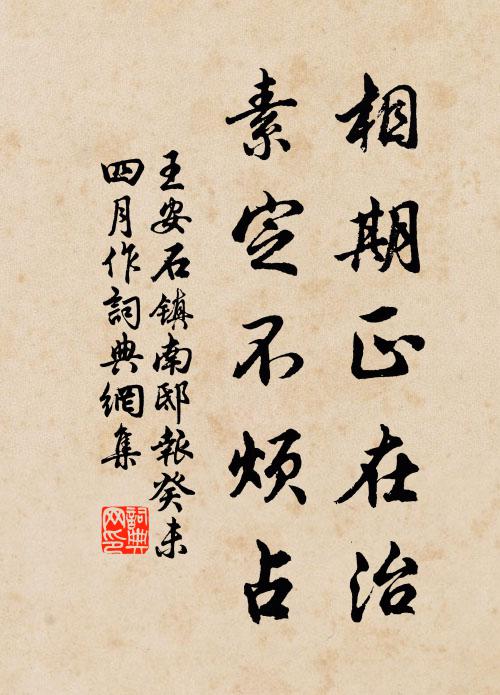 相期正在治
素定不煩占
王安石鎮南邸報癸未
四月作詞典網集
詞典
网印